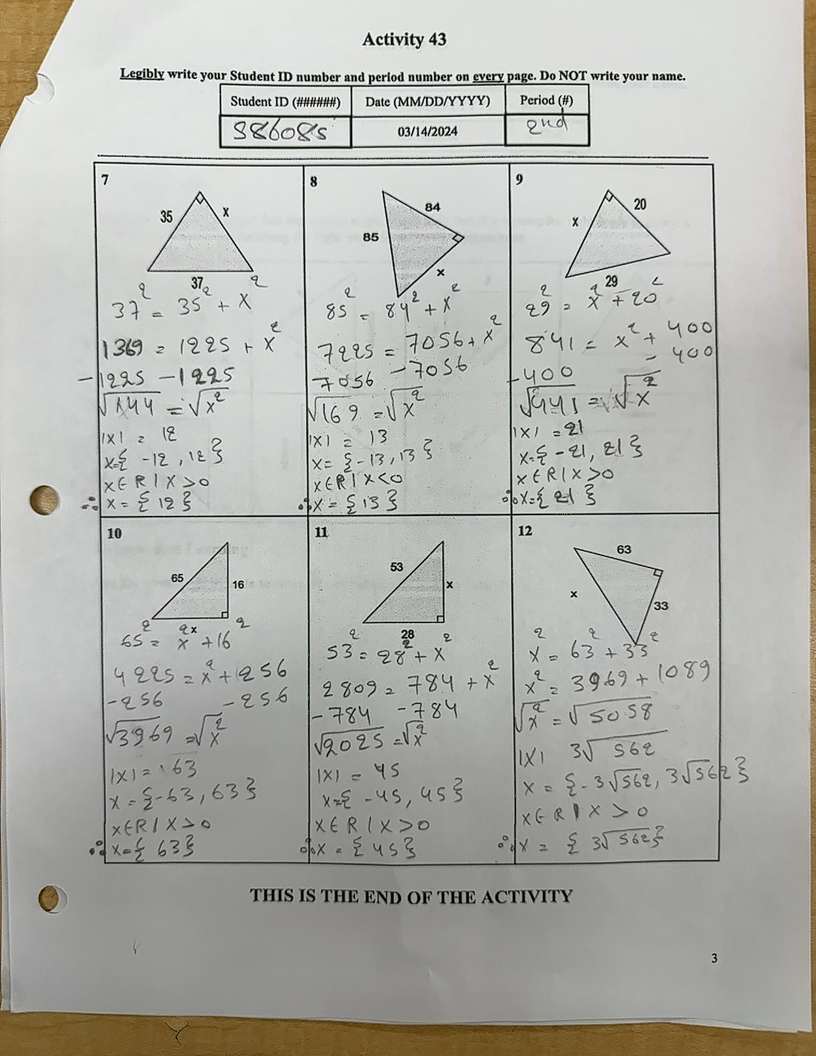 Activity 43
Legibly write your Student ID number and period number on every page. Do NOT write your name.
Student ID (######) Date (MM/DD/YYYY) Period (#)
386085 03/14/2024 2nd
7
35 x
37
37² = 35² + x²
1369 = 1225 + x²
-1225 -1225
√144 = √x²
|x| = 12
x={ -12, 12 }
x∈R | x>0
∴ x = { 12 }
8
84
85
x
85² = 84² + x²
7225 = 7056 + x²
7056 -7056
√169 = √x²
|x| = 13
x= { -13, 13 }
x∈R | x<0
∴ x = { 13 }
9
20
x
29
29² = x² + 20²
841 = x² + 400
-400 - 400
√441 = √x²
|x| = 21
x={ -21, 21 }
x∈R | x>0
∴ x={ 21 }
10
65
16
x
65² = x² + 16²
4225 = x² + 256
-256 -256
√3969 = √x²
|x| = 63
x = {-63, 63}
x∈R | x>0
∴ x={ 63 }
11
53
x
28
53² = 28² + x²
2809 = 784 + x²
-784 -784
√2025 = √x²
|x| = 45
x={ -45, 45 }
x∈R | x>0
∴ x = { 45 }
12
63
x
33
x² = 63² + 33²
x² = 3969 + 1089
√x² = √5058
|x| 3√562
x = {-3√562, 3√562}
x∈R | x>0
∴ x = { 3√562 }
THIS IS THE END OF THE ACTIVITY
3